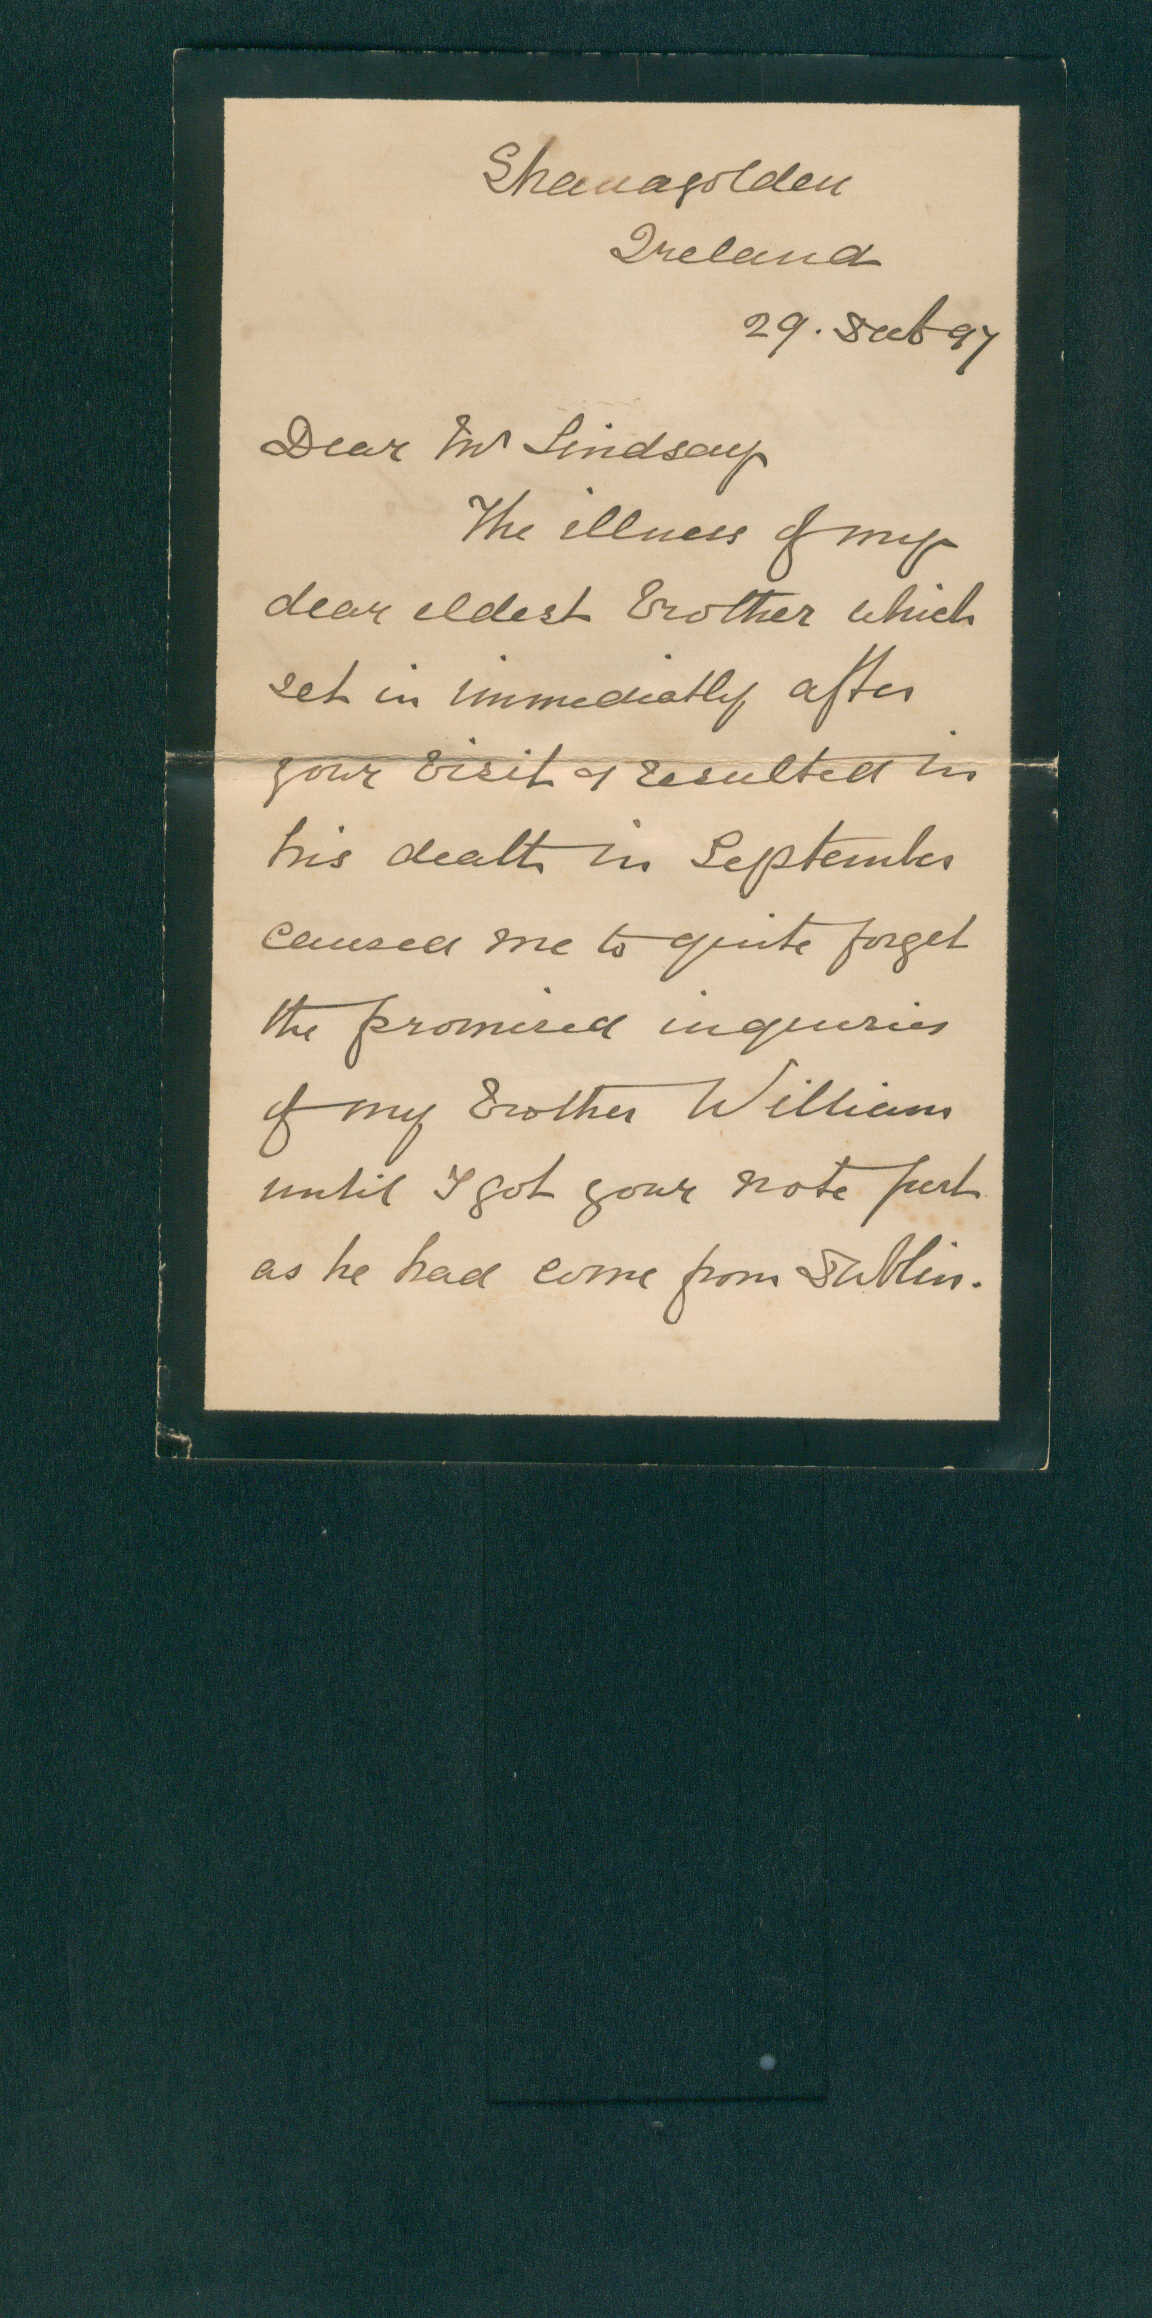 Shanagolden
Ireland
29. Oct 97
Dear Mr Lindsay
The illness of my
dear eldest Brother which
set in immediatly after
your visit & resulted in
his death in September
caused me to quite forget
the promised inquiries
of my Brother William
until I got your note just
as he had come from Dublin.